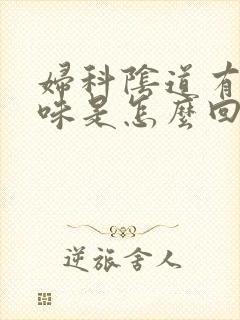 婦科陰道有
味是怎麼回
逆旅舍人